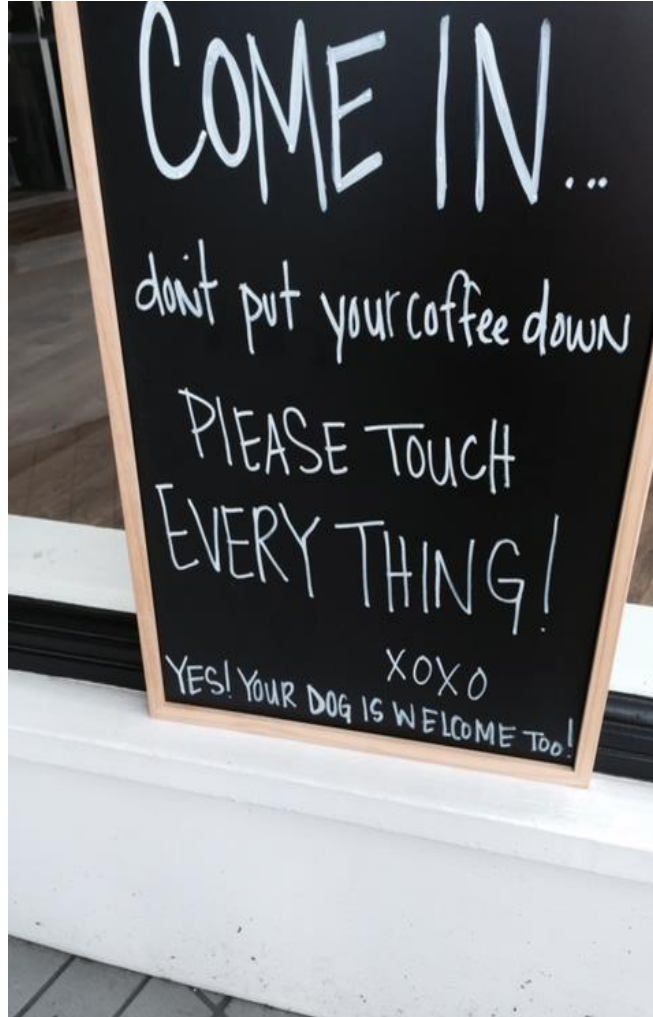 COME IN...
don't put your coffee down
PLEASE TOUCH
EVERY THING!
XOXO
YES! YOUR DOG IS WELCOME TOO!